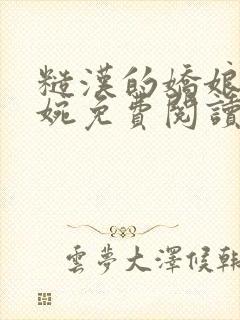 糙漢的嬌娘
婉免費閱讀
雲夢大澤候韓